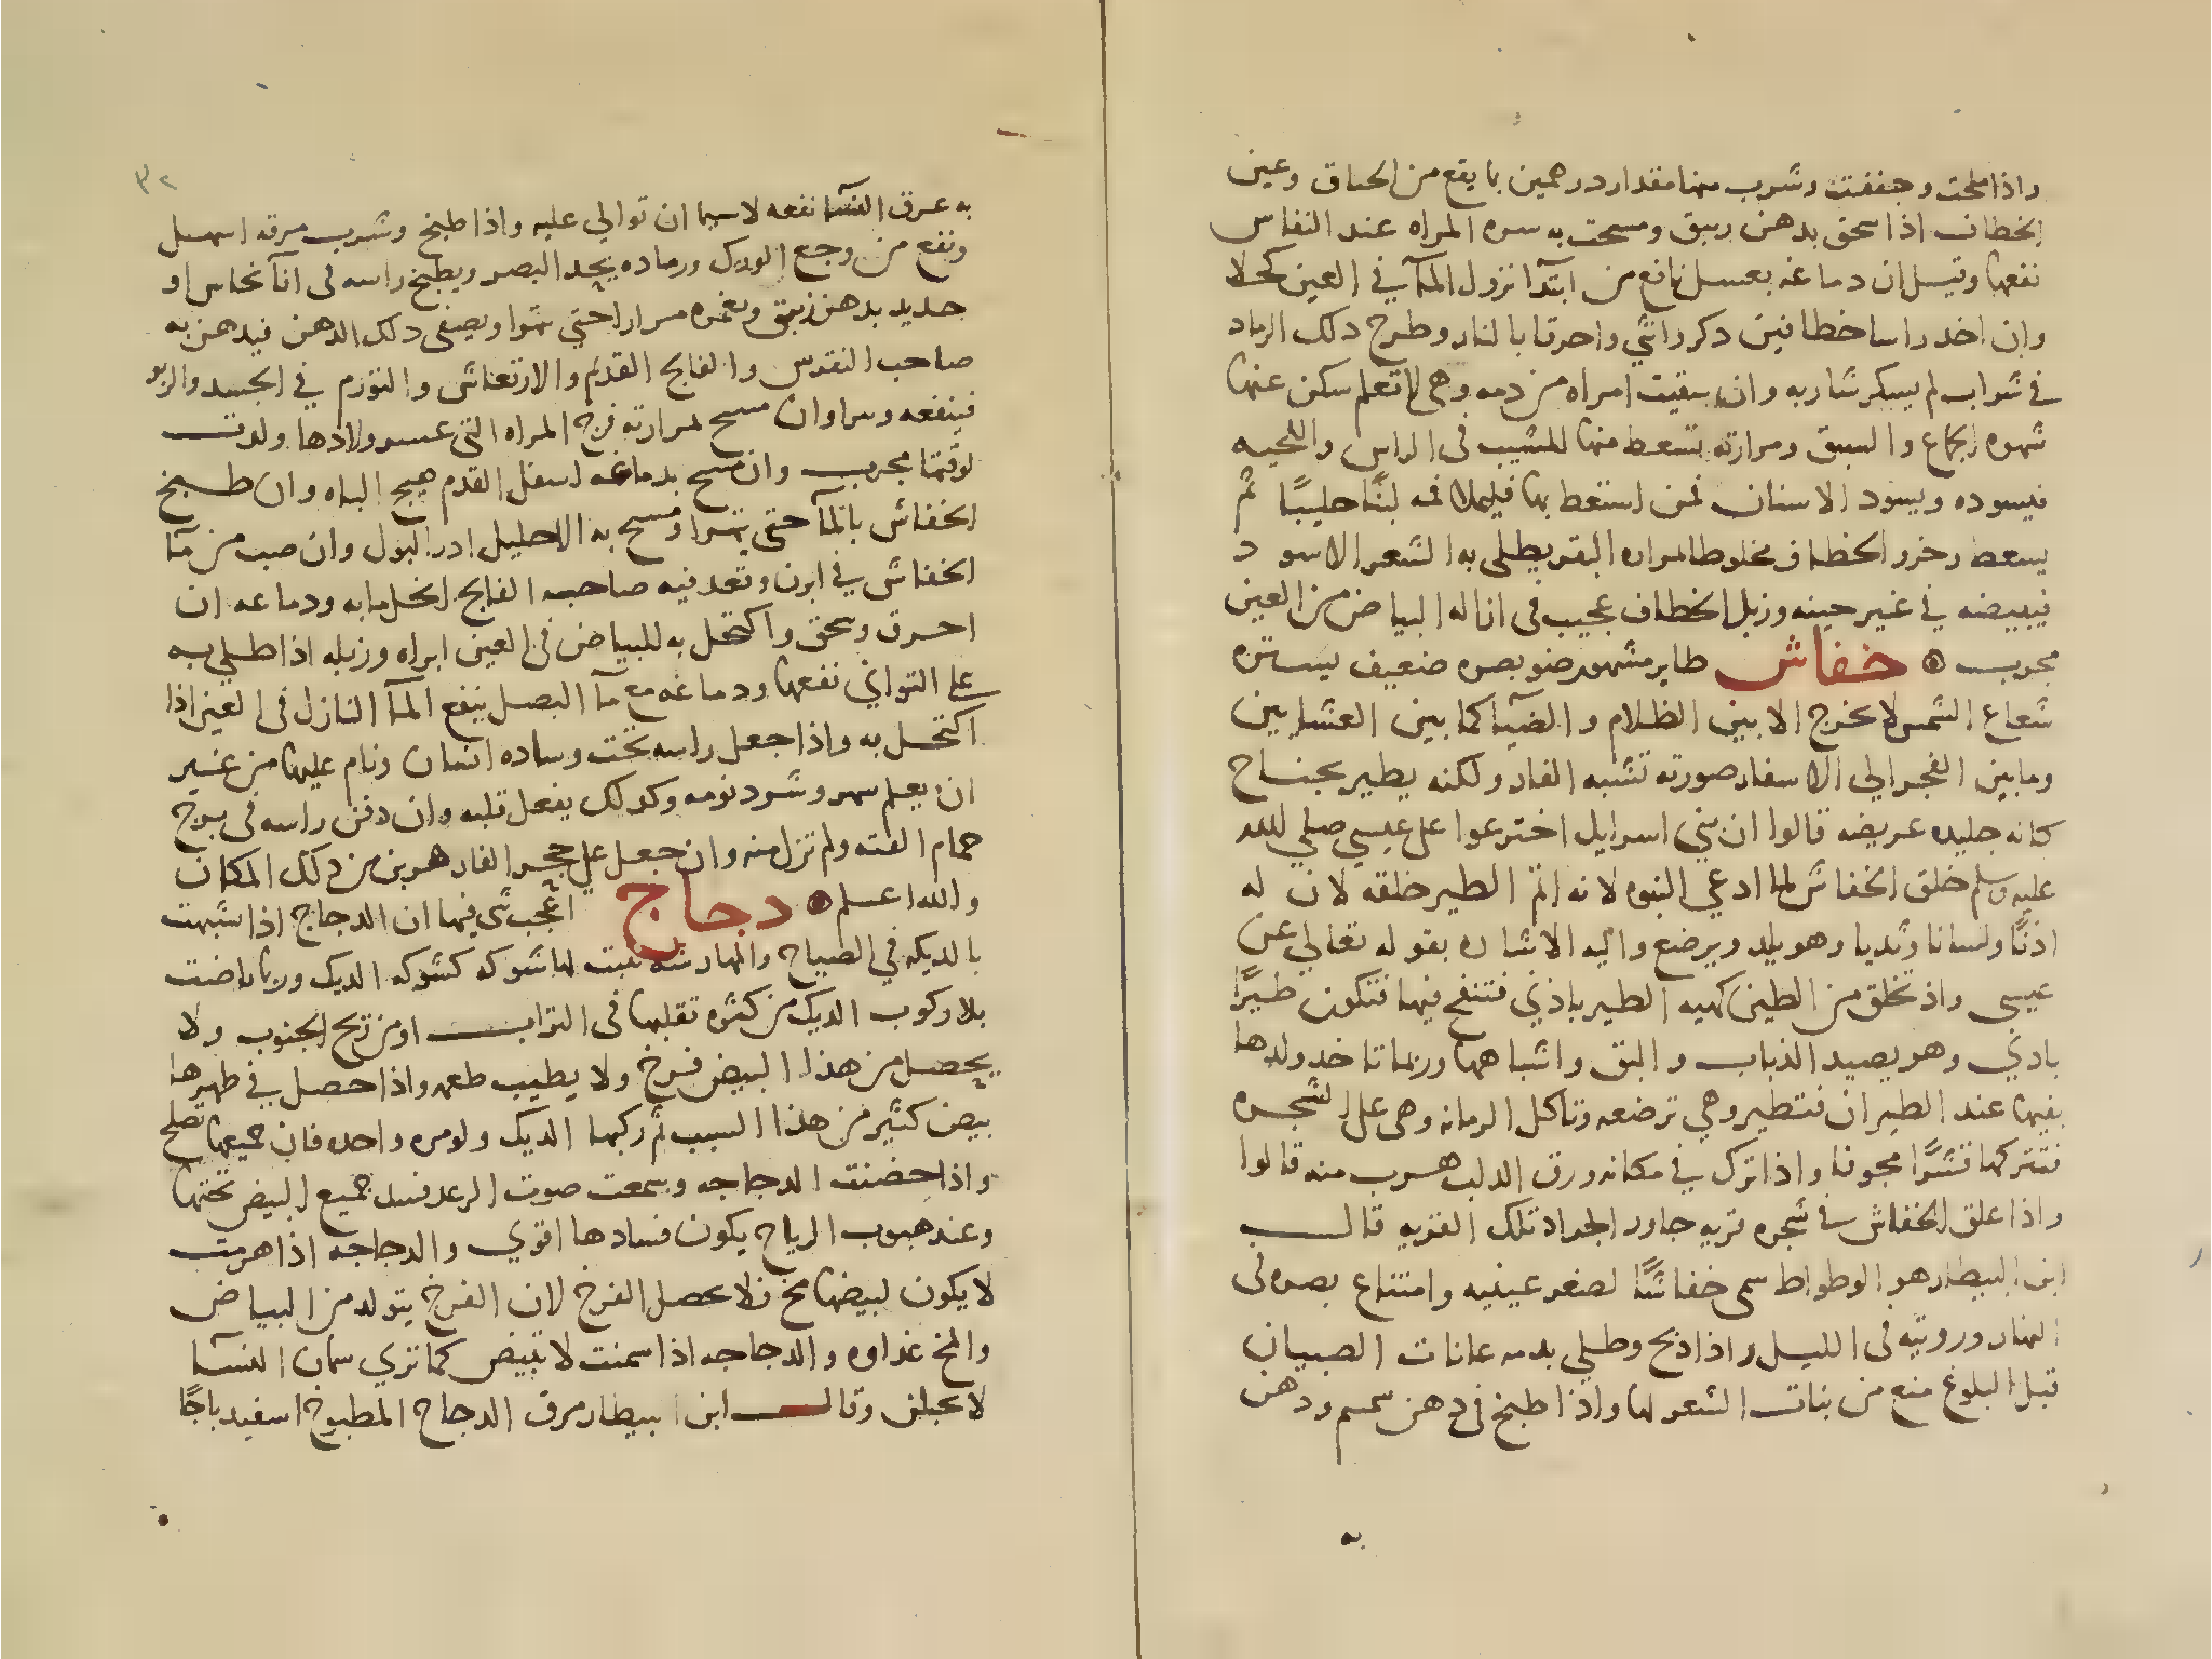 واذا ملحت وجففت وشرب منها مقدار درهمين بما يقع من الخناق وعين
الخطاف اذا سحق بدهن زيبق ومسحت به سره المراه عند النفاس
نفعها وقيل ان دماغه بعسل نافع من ابتدآ نزول المآ في العين كحلا
وان اخد راسا خطافين دكر وانثي واحرقا بالنار وطرح دلك الرماد
في شراب لم يسكر شاربه وان سقيت امراه من دمه وهي لا تعلم سكن عنها
شهوه الجماع والسبق ومرارته تسعط منها للشيب في الراس واللحيه
فيسوده ويسود الاسنان فمن استعط بها فليملا فمه لبنًا حليبًا ثم
يسعط وخرو الخطاف مخلوطا لمراره البقر يطلي به الشعر الاسود
فيبيضه في غير حينه وزبل الخطاف عجيب في ازاله البياض من العين
مجرب ۞ خفاش طاير مشهور ضو بصره ضعيف يستره
شعاع الشمس لا يخرج الا بين الظلام والضيآ كما بين العشاين
وما بين الفجر الي الاسفار صورته تشبه الفار ولكنه يطير بجناح
كانه جليده عريضه قالوا ان بني اسرايل اخترعوا علي عيسي صلي الله
عليه وسلم خلق الخفاش لما ادعي النبوه لانه اتم الطير خلقه لان له
اذنًا ولسانا وثديا وهو يلد ويرضع واليه الاشاره بقوله تعالي عن
عيسي واذ تخلق من الطين كهيه الطير باذني فتنفخ فيها فتكون طيرًا
بادني وهو يصيد الذباب والبق واشباههما وربما تاخد ولدها
بفيها عند الطيران فتطير وهي ترضعه وتاكل الرمانه وهي علي الشجره
فتتركها قشرًا مجوفا واذا ترك في مكانه ورق الدلب هرب منه قالوا
واذا علق الخفاش في شجره قريه جاور الجراد تلك القريه قالـــب
ابن البيطار هو الوطواط سمي خفاشًا لصغر عينيه وامتناع بصره في
النهار ورويته في الليل واذا ذبح وطلي بدمه عانات الصبيان
قبل البلوغ منع من بنات الشعر لها واذا طبخ في دهن سمسم ودهن
به
٣٢
به عرق النسآ نفعه لاسيما ان توالي عليه واذا طبخ وشرب مرقه اسهل
ونفع من وجع الورك ورماده يحد البصر ويطبخ راسه في انآ نحاس او
حديد بدهن زنبق ويغمره مرارا حتي يتهرا ويصفي دلك الدهن فيدهن به
صاحب النقرس والفالج القديم والارتعاش والتورم في الجسد والربو
فينفعه ويبرا وان مسح لمرارته فرج المراه التي عسر ولادها ولدت
لوقتها مجرب وان مسح بدماغه اسفل القدم هيج الباه وان طبخ
الخفاش بالمآ حتي يتهرا ومسح به الاحليل ادر البول وان صب من مآ
الخفاش في ابزن وقعد فيه صاحب الفالج انحل ما به ودماغه ان
احرق وسحق واكتحل به للبياض في العين ابراه وزبله اذا طلي به
علي التواني نفعها ودماغه مع مآ البصل ينفع المآ النازل في العين اذا
اكتحل به واذا جعل راسه تحت وساده انسان ونام عليها من غير
ان يعلم سهر وشرد نومه وكدلك يفعل قلبه وان دفن راسه في برج
حمام الفته ولم تزل منه وان جعل علي جحر الفار هربن من دلك المكان
والله اعلم ۞ دجاج اعجب شي فيها ان الدجاج اذا شبهت
بالديكه في الصياح والهارشه نبت لها شوكه كشوكه الديك وربما باضت
بلا ركوب الديك من كثره تقلبها في التراب او من ريح الجنوب ولا
يحصل من هذا البيض فرخ ولا يطيب طعمه واذا حصل في ظهرها
بيض كثير من هذا السبب ثم ركبها الديك ولو مره واحده فان جميعها تصلح
واذا حضنت الدجاجه وسمعت صوت الرعد فسد جميع البيض تحتها
وعند هبوب الرياح يكون فسادها اقوي والدجاجه اذا هرمت
لا يكون لبيضها مخ فلا يحصل الفرخ لان الفرخ يتولد من البياض
والمخ غداوه والدجاجه اذا سمنت لا تبيض كما تري سمان النسآ
لا يحبلن وقالـــب ابن البيطار مرق الدجاج المطبوخ اسفيدباجًا